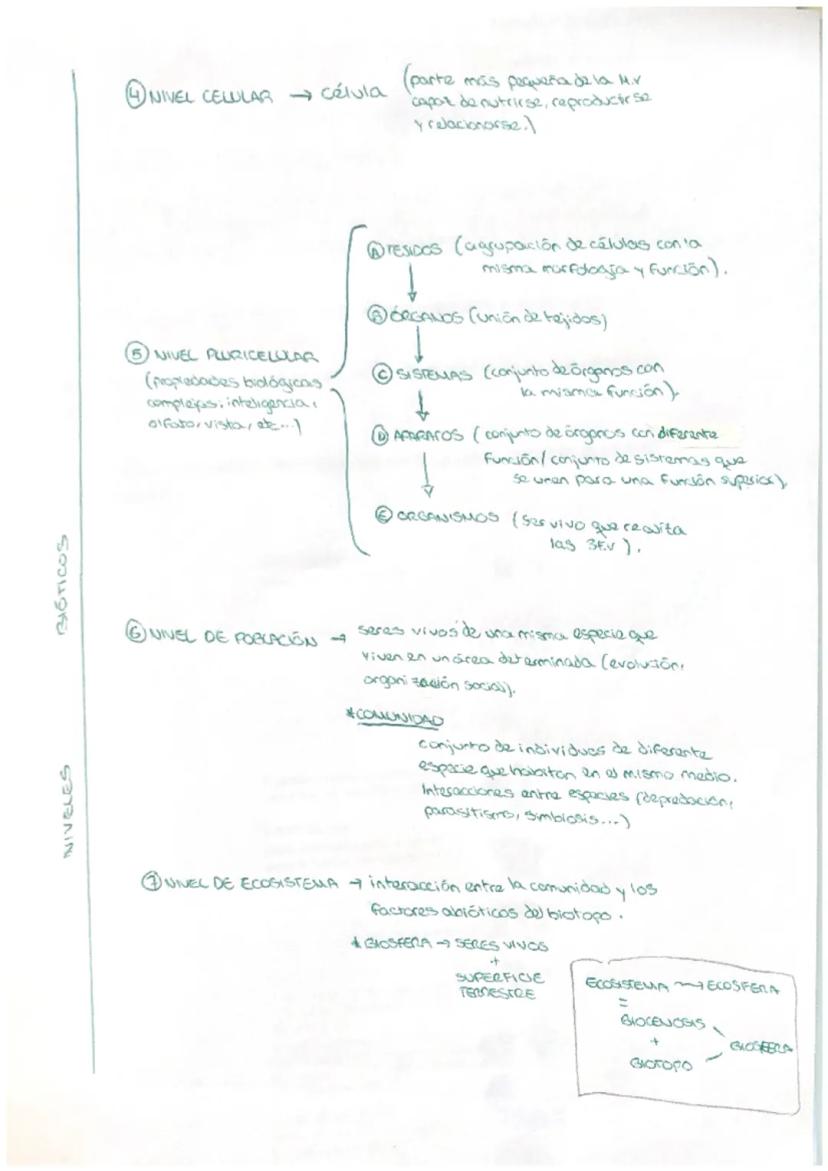 ④ NIVEL CELULAR → célula (parte más pequeña de la M.V
capaz de nutrirse, reproducirse
y relacionarse.)
⑤ NIVEL PLURICELULAR
(propiedades biológicas
complejas: inteligencia,
olfato, vista, etc...)
Ⓐ TEJIDOS (agrupación de células con la
misma morfología y función).
Ⓑ ÓRGANOS (unión de tejidos)
Ⓒ SISTEMAS (conjunto de órganos con
la misma función).
Ⓓ APARATOS (conjunto de órganos con diferente
función/conjunto de sistemas que
se unen para una función superior).
Ⓔ ORGANISMOS (ser vivo que
las 3F.V).
NIVELES BIÓTICOS
⑥ NIVEL DE POBLACIÓN → seres vivos de una misma especie que
viven en un área determinada (evolución,
organización social).
*COMUNIDAD
conjunto de individuos de diferente
especie que habitan en el mismo medio.
Interacciones entre especies (depredación,
parasitismo, simbiosis...)
⑦ NIVEL DE ECOSISTEMA → interacción entre la comunidad y los
factores abióticos del biotopo.
* BIOSFERA → SERES VIVOS
+
SUPERFICIE
TERRESTRE
ECOSISTEMA → ECOSFERA
=
BIOCENOSIS
+
BIOTOPO
BIOSFERA